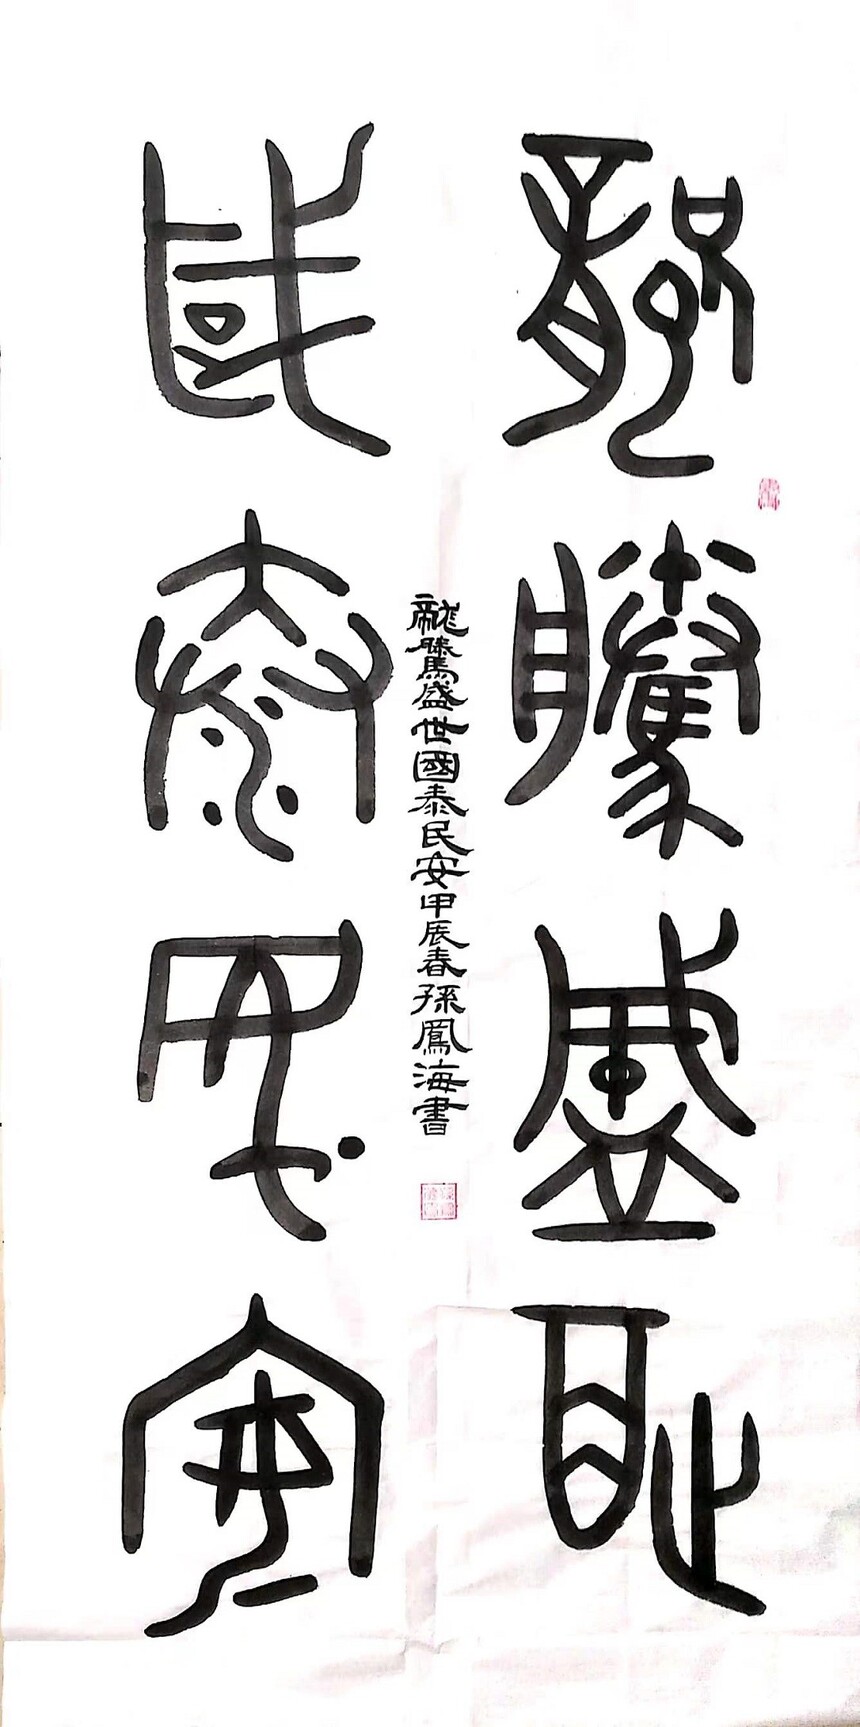 龍騰盛世
國泰民安
龍騰盛世國泰民安甲辰春孫鳳海書